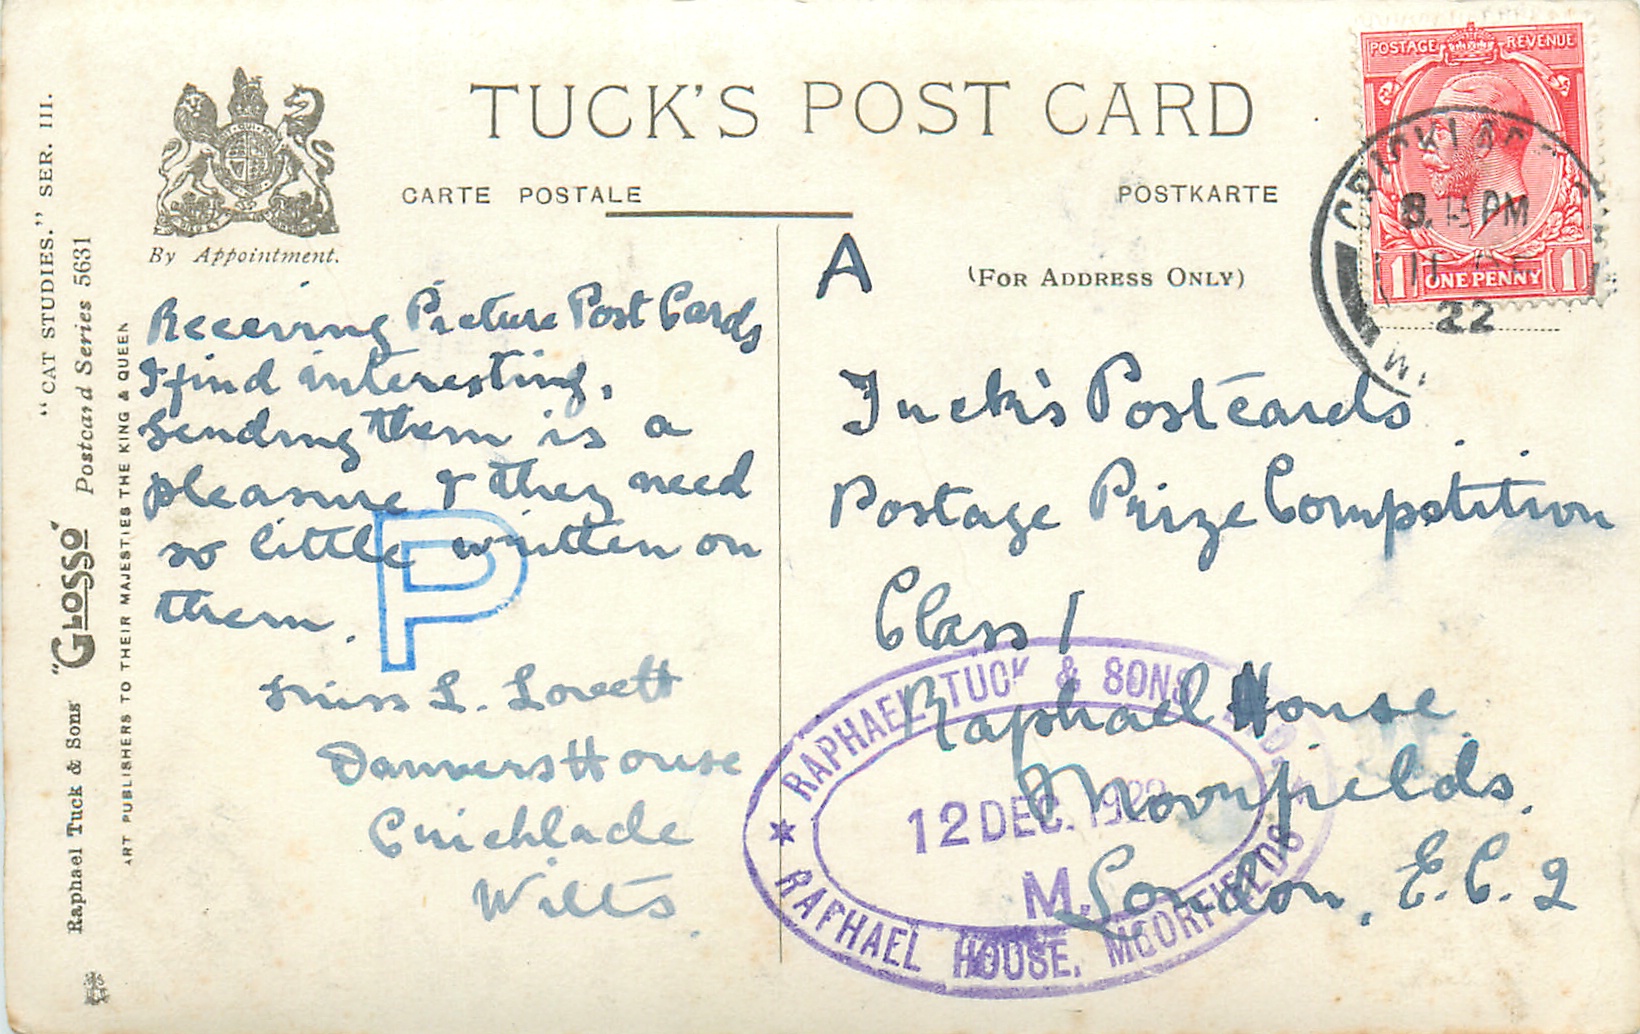 TUCK'S POST CARD
CARTE POSTALE
POSTKARTE
By Appointment.
(FOR ADDRESS ONLY)
"CAT STUDIES." SER. III.
Postcard Series 5631
Raphael Tuck & Sons' "GLOSSO"
ART PUBLISHERS TO THEIR MAJESTIES THE KING & QUEEN
Receiving Picture Post Cards
I find interesting,
Sending them is a
pleasure & they need
so little written on
them.
P
Miss L. Lovett
Danvers House
Cricklade
Wilts.
A
Tuck's Postcards
Postage Prize Competition
Class 1
Raphael House
Moorfields.
London, E.C.2
POSTAGE REVENUE
ONE PENNY
1 1
CRICKLADE
PM
11 DE
22
RAPHAEL TUCK & SONS
12 DEC. 1922
M.
RAPHAEL HOUSE, MOORFIELDS